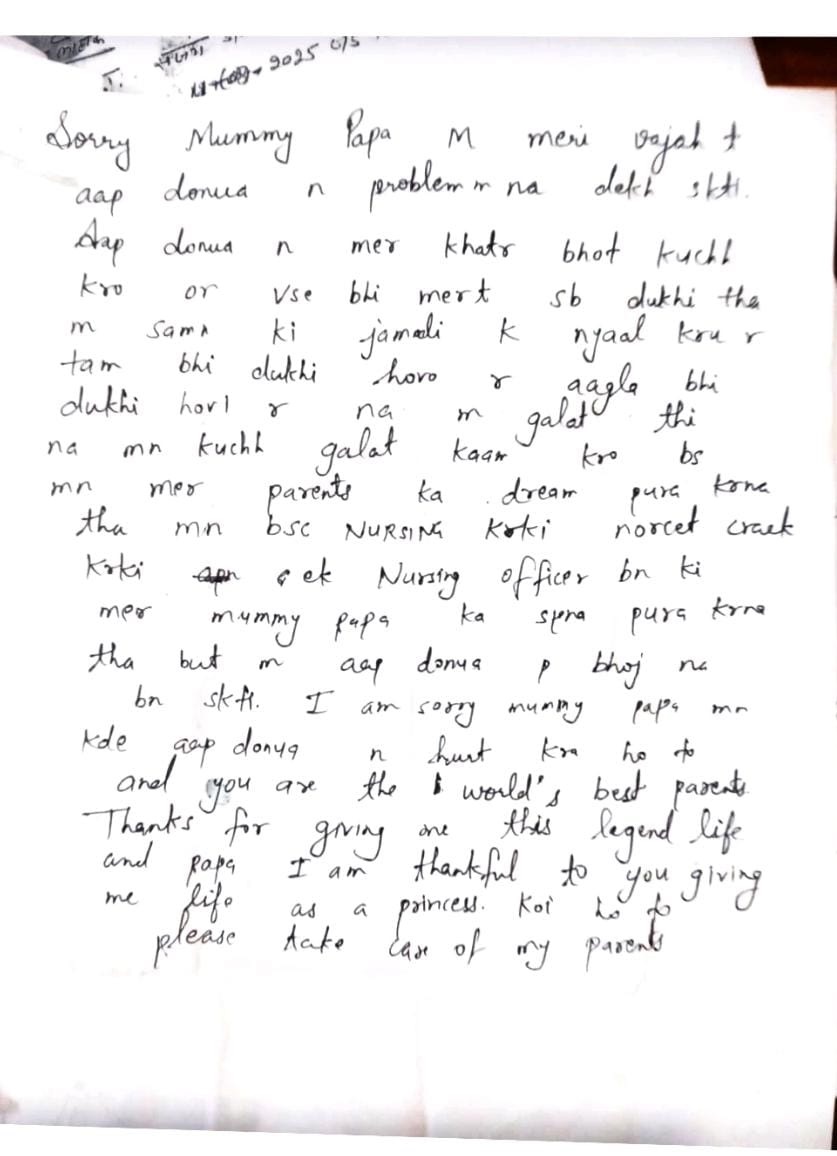 2025
Sorry Mummy Papa M meri vajah t
aap donua n problem m na dekh skti.
Aap donua n mer khatr bhot kuchh
kro or vse bhi mert sb dukhi tha
m samn ki jamali k nyaal kru r
tam bhi dukhi hovo r aagla bhi
dukhi hovl r na m galat thi
na mn kuchh galat kaam kro bs
mn mer parents ka dream pura krna
tha mn bsc NURSING krki norcet crack
krki ek Nursing officer bn ki
mer mummy papa ka spna pura krna
tha but m aap donya p bhoj na
bn skti. I am sorry mummy papa mn
kde aap donya n hurt kra ho to
and you are the world's best parents.
Thanks for giving me this legend life
and papa I am thankful to you giving
me life as a princess. Koi ho to
please take care of my parents